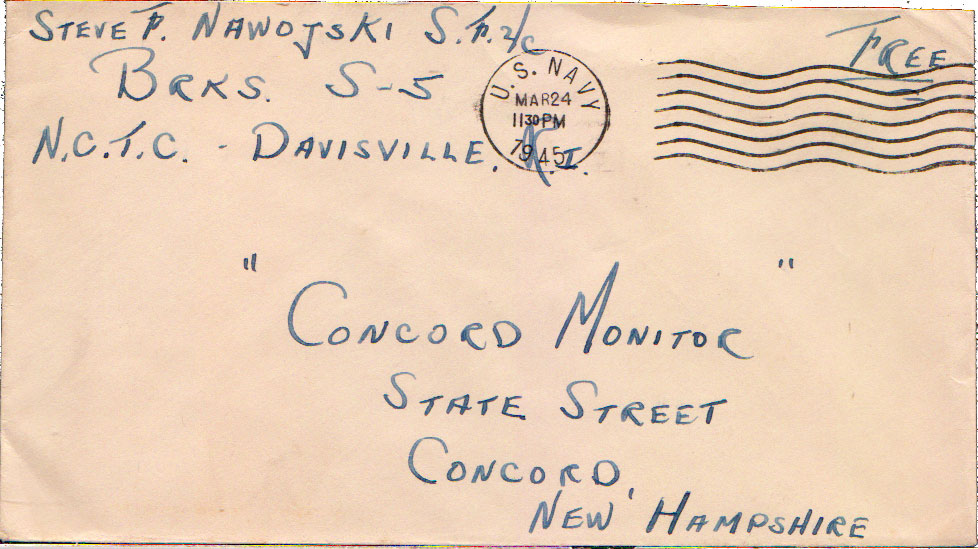 STEVE F. NAWOJSKI S.F. 2/C
BRKS. S-5
N.C.T.C. - DAVISVILLE, R.I.
FREE
U.S. NAVY
MAR 24
1130 PM
1945
" CONCORD MONITOR "
STATE STREET
CONCORD,
NEW HAMPSHIRE